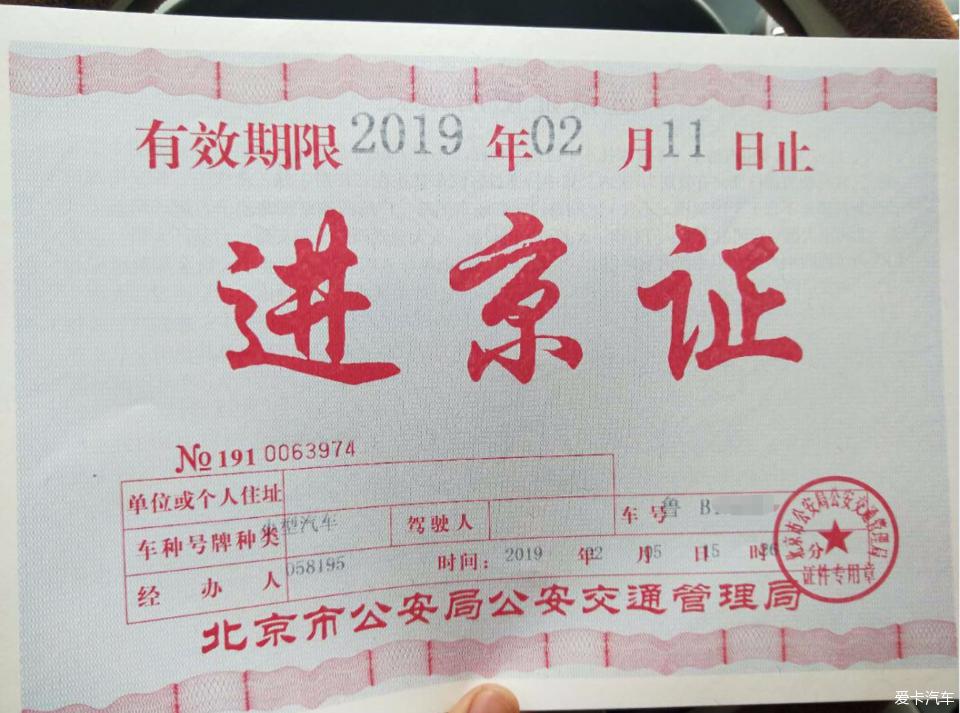 有效期限2019年02月11日止
进京证
№191 0063974
单位或个人住址
车种号牌种类 小型汽车 驾驶人 车号 鲁 B.
经办人 058195 时间: 2019年02月05日15时26分
北京市公安局公安交通管理局
北京市公安局公安交通管理局
证件专用章
爱卡汽车